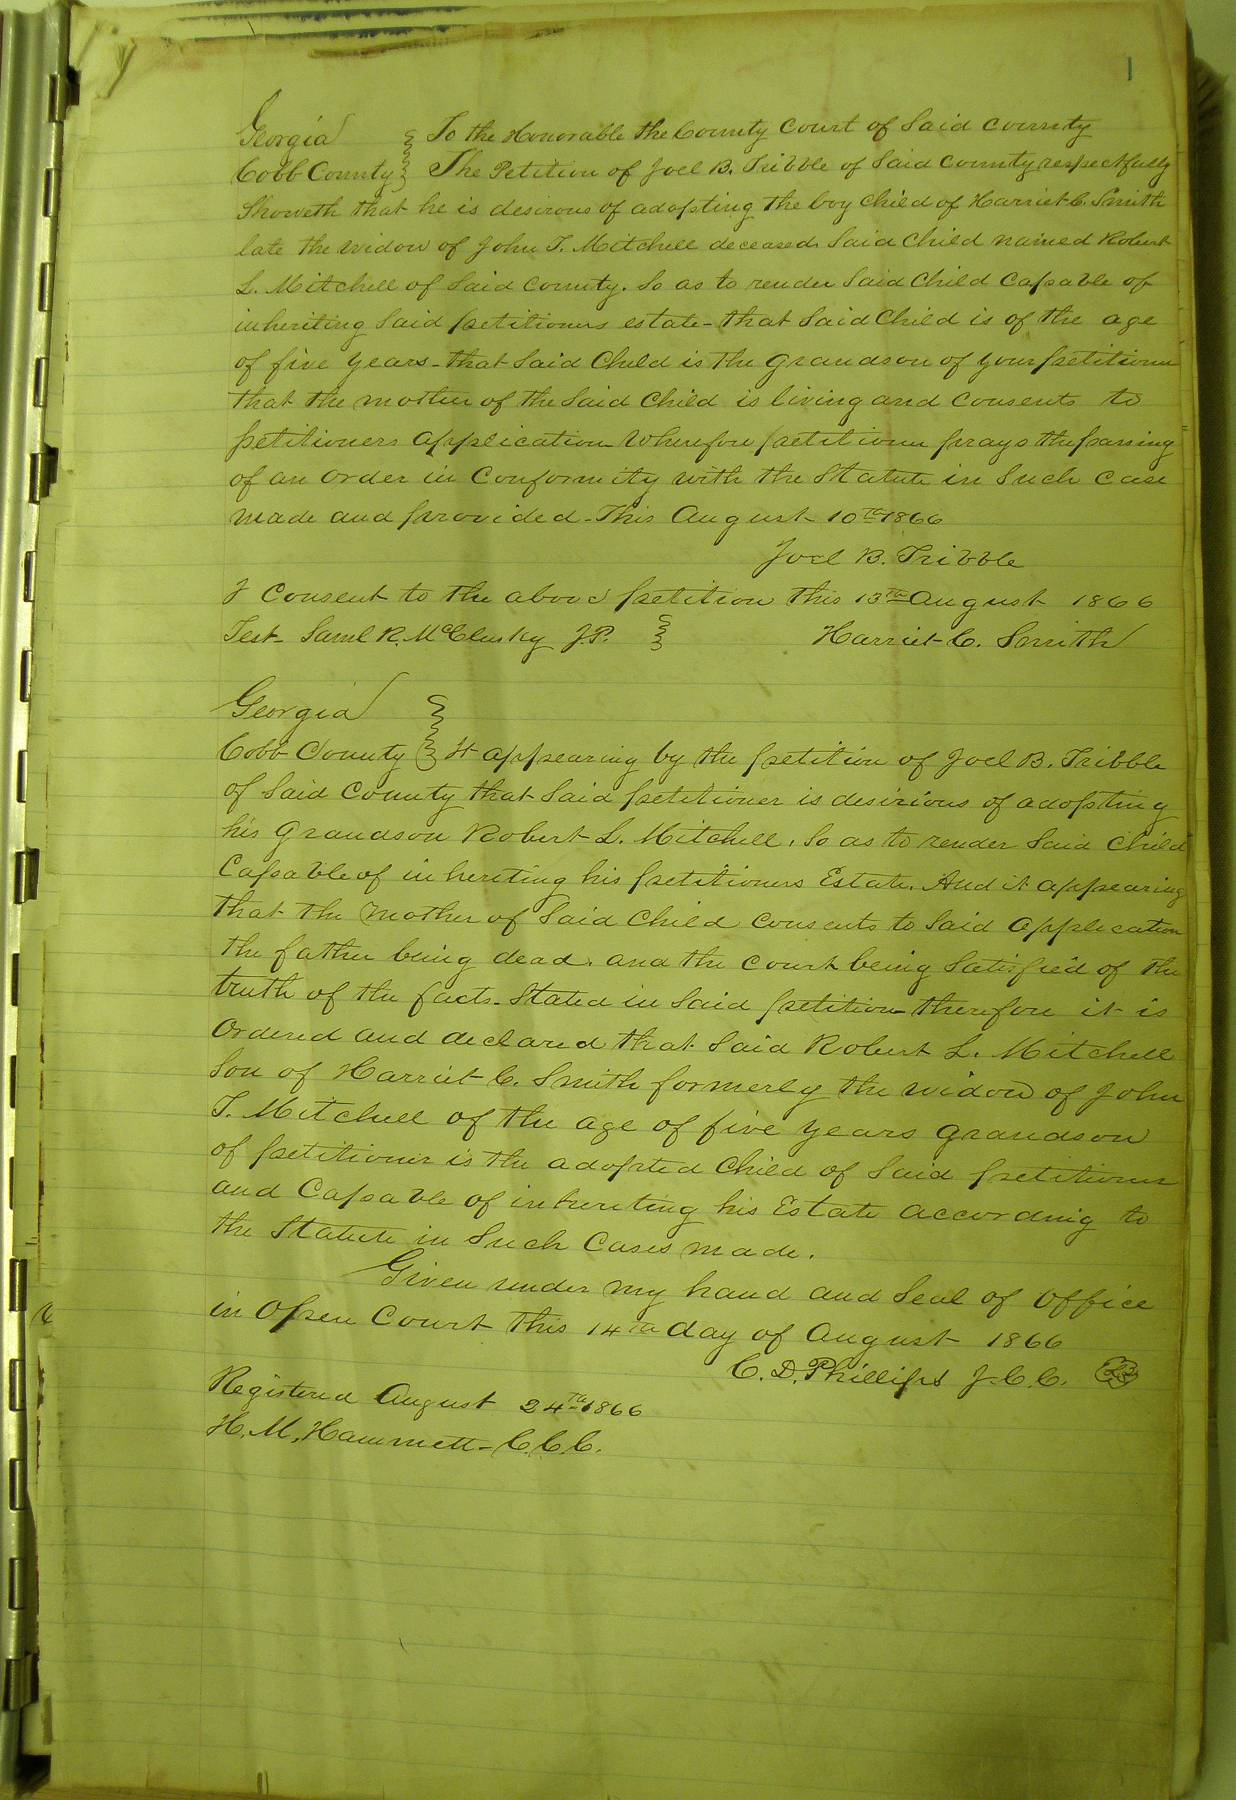 1
Georgia } To the Honorable the County Court of Said County
Cobb County } The Petition of Joel B. Tribble of Said County respectfully
Showeth that he is desirous of adopting the boy child of Harriet C. Smith
late the widow of John T. Mitchell deceased. Said Child named Robert
L. Mitchell of Said County. So as to render Said Child Capable of
inheriting Said petitioners estate - that Said Child is of the age
of five years - that Said Child is the grandson of your petitioner
that the mother of the Said Child is living and consents to
petitioners application Wherefore petitioner prays the passing
of an order in Conformity with the Statute in Such case
made and provided - This August 10th 1866
Joel B. Tribble
I Consent to the above petition this 13th August 1866
Test - Saml R. McClusky J.P. } Harriet C. Smith
Georgia }
Cobb County } It appearing by the petition of Joel B. Tribble
of Said County that Said petitioner is desirious of adopting
his Grandson Robert L. Mitchell, So as to render Said Child
Capable of inheriting his petitioners Estate. And it appearing
that the Mother of Said Child consents to Said Application
the father being dead. and the court being Satisfied of the
truth of the facts Stated in Said petition therefore it is
Ordered and declared that Said Robert L. Mitchell
Son of Harriet C. Smith formerly the widow of John
T. Mitchell of the age of five years grandson
of petitioner is the adopted Child of Said petitioner
and Capable of inheriting his Estate according to
the Statute in Such Cases made.
Given under my hand and Seal of Office
in Open Court this 14th day of August 1866
C. D. Phillips J.C.C. LS
Registered August 24th 1866
H. M. Hammett - C.C.C.